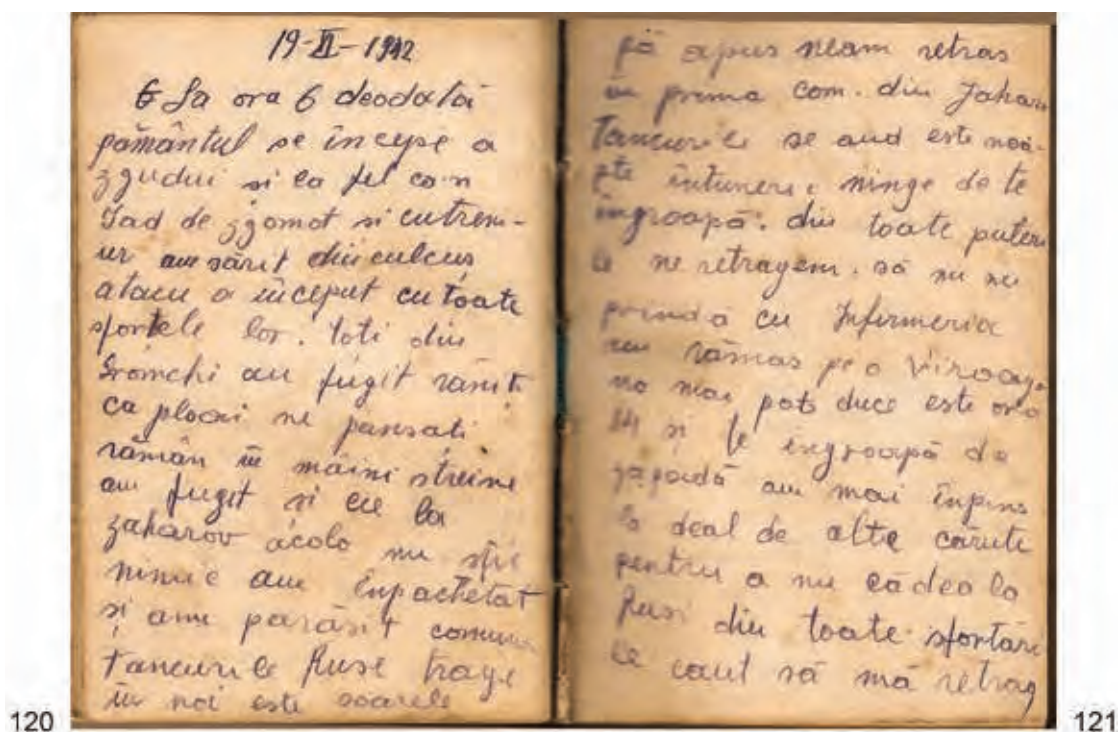 19-XI-1942
6 La ora 6 deodată
pământul se începe a
zgudui si ca fel ca-n
Iad de zgomot si cutrem-
ur am sărit din culcus
atacu a inceput cu toate
sfortele lor. toti din
au fugit răniti
ca ploaii ne pansati
rămân in mâini streine
am fugit si eu la
zaharov acolo nu stie
nimic am înpachetat
și am parăsit comuna
Tancurile Ruse trage
in noi este soarele
120
pă apus neam retras
in prima com. din
Tancurile se aud este noa-
pte intuneric ninge de te
îngroapă. din toate puteri
le ne retragem. să nu ne
prindă cu Infirmeria
am rămas pe o Viroaga
no mai pots duce este ora
si te ingroapă de
zapadă am mai înpins
la deal de alte cărute
pentru a nu cădea la
Rusi din toate sfortări
le caut să mă retrag
121